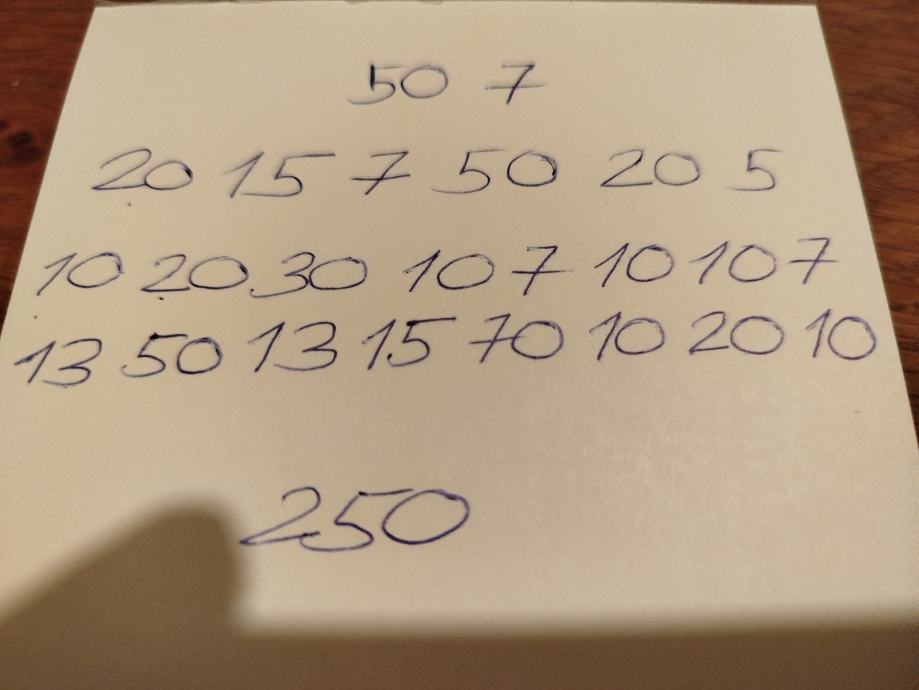 50 7
20 15 7 50 20 5
10 20 30 10 7 10 10 7
13 50 13 15 70 10 20 10
250